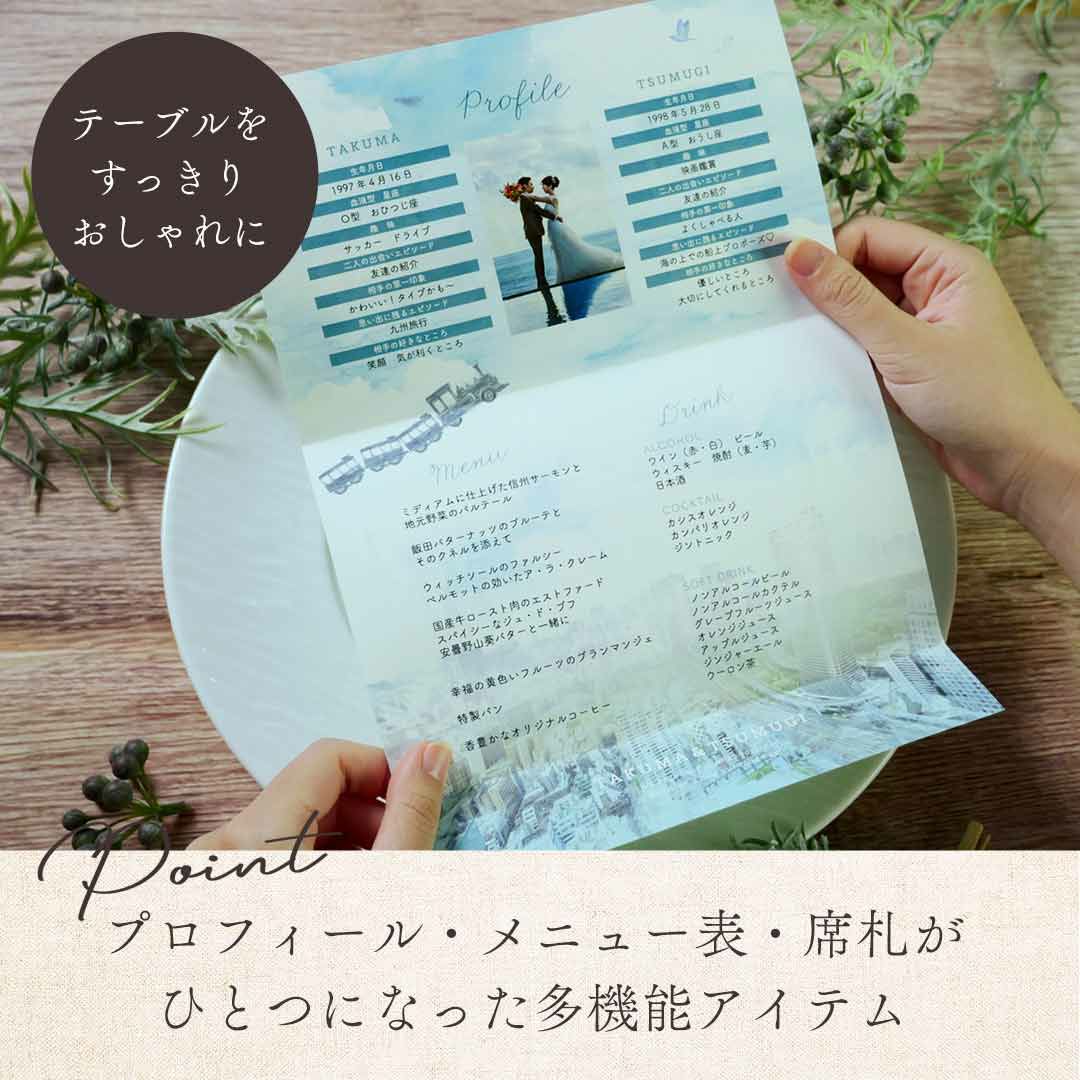 テーブルを
すっきり
おしゃれに
Profile
TAKUMA
生年月日
1997年4月16日
血液型 星座
O型 おひつじ座
趣味
サッカー ドライブ
二人の出会いエピソード
友達の紹介
相手の第一印象
かわいい!タイプかも〜
思い出に残るエピソード
九州旅行
相手の好きなところ
笑顔 気が利くところ
TSUMUGI
生年月日
1998年5月28日
血液型 星座
A型 おうし座
趣味
映画鑑賞
二人の出会いエピソード
友達の紹介
相手の第一印象
よくしゃべる人
思い出に残るエピソード
海の上での船上プロポーズ♡
相手の好きなところ
優しいところ
大切にしてくれるところ
Menu
ミディアムに仕上げた信州サーモンと
地元野菜のバルテール
飯田バターナッツのブルーテと
そのクネルを添えて
ウィッチソールのファルシー
ベルモットの効いたア・ラ・クレーム
国産牛ロースト肉のエストファード
スパイシーなジュ・ド・ブフ
安曇野山葵バターと一緒に
幸福の黄色いフルーツのブランマンジェ
特製パン
香豊かなオリジナルコーヒー
Drink
ALCOHOL
ワイン(赤・白) ビール
ウィスキー 焼酎(麦・芋)
日本酒
COCKTAIL
カシスオレンジ
カンパリオレンジ
ジントニック
SOFT DRINK
ノンアルコールビール
ノンアルコールカクテル
グレープフルーツジュース
オレンジジュース
アップルジュース
ジンジャーエール
ウーロン茶
TAKUMA&TSUMUGI
Point
プロフィール・メニュー表・席札が
ひとつになった多機能アイテム